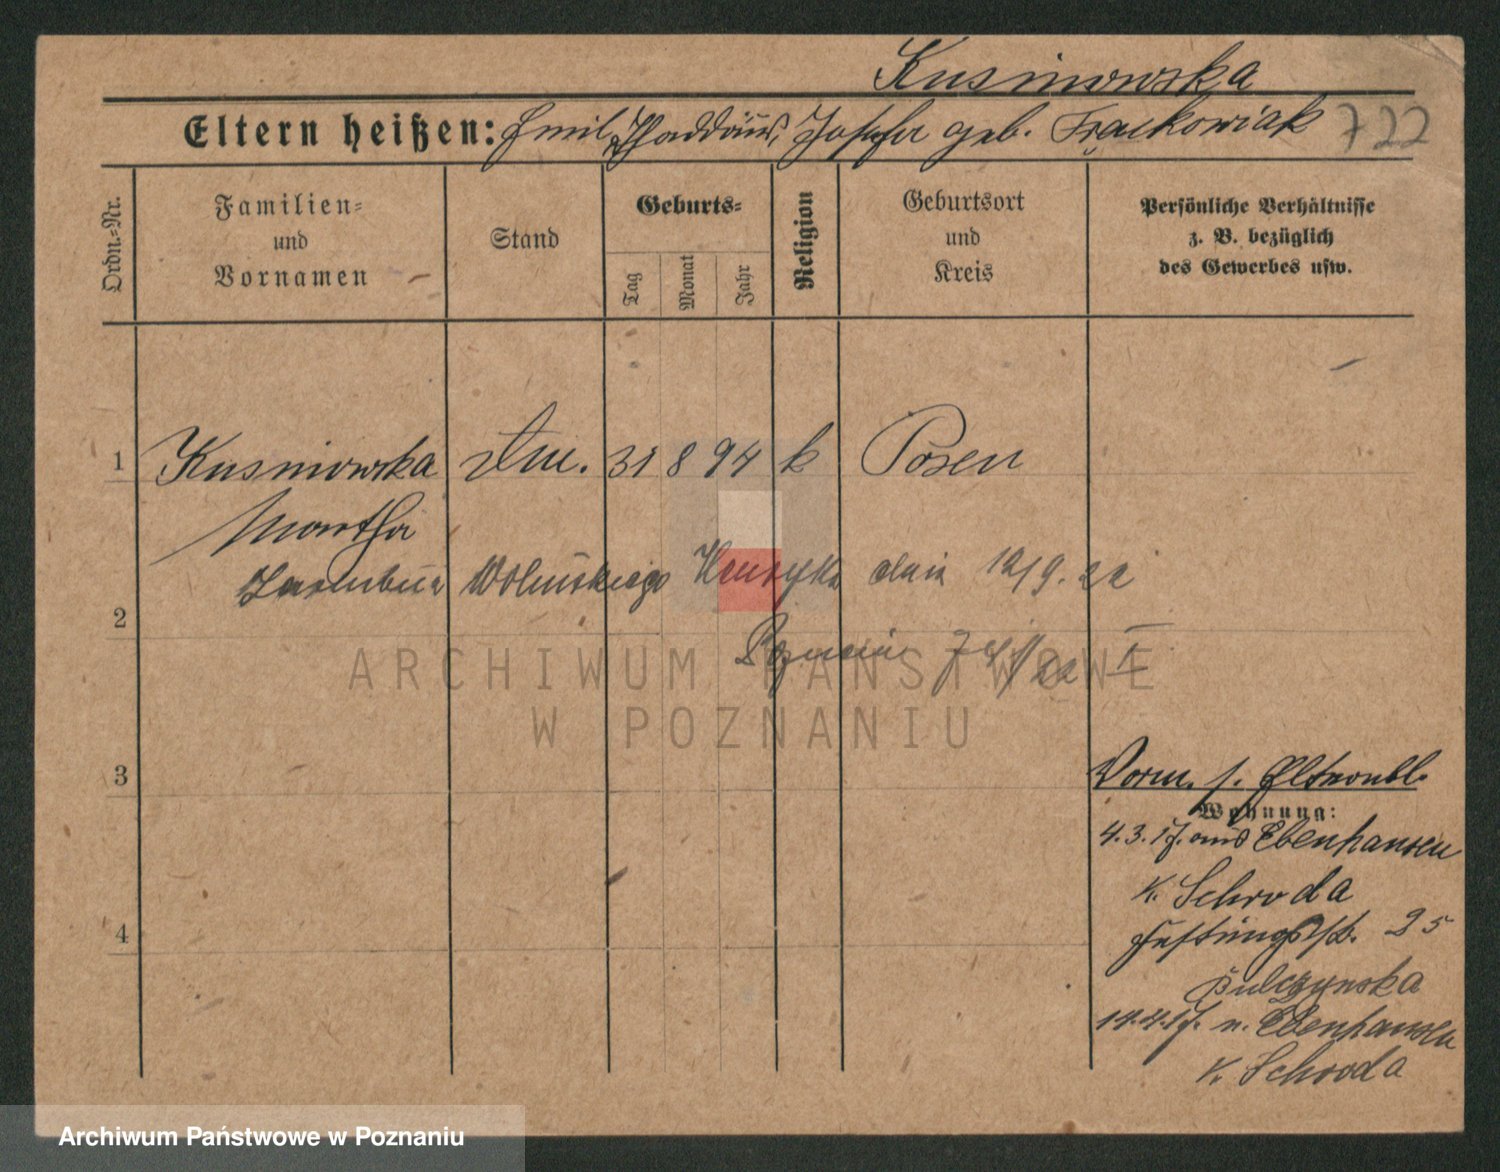 Kusniowska
Eltern heißen: Emil Thaddäus, Josefa geb. Frąckowiak 722
Ordn.-Nr.
Familien-
und
Vornamen
Stand
Geburts-
Tag
Monat
Jahr
Religion
Geburtsort
und
Kreis
Persönliche Verhältnisse
z. B. bezüglich
des Gewerbes usw.
1 Kusniowska 31 8 94 k Posen
Martha
Wolińskiego Henryka dnia 12/9.22
2
Poznań
ARCHIWUM PAŃSTWOWE
W POZNANIU
3
Vorm. s. Elternbl.
Wohnung:
4.3.17. aus Ebenhausen
K. Schroda
4
Festungsstr. 25
Pulczynska
14.4.17. n. Ebenhausen
K. Schroda
Archiwum Państwowe w Poznaniu